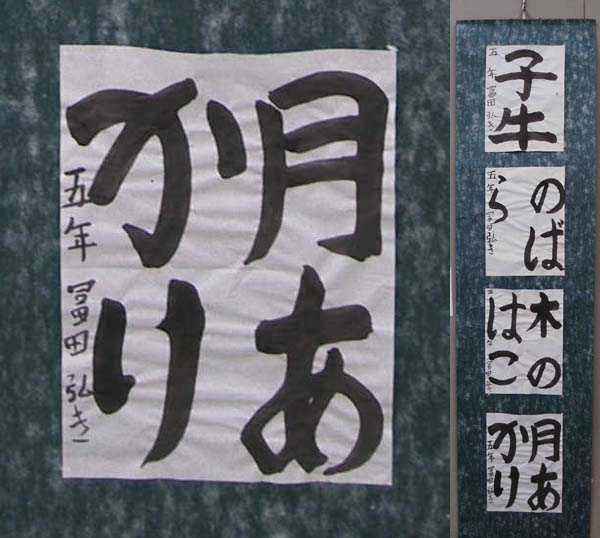 月あ
かり
五年 冨田弘き
子牛
五年 冨田弘き
のば
ら
五年 冨田弘き
木の
はこ
月あ
かり
五年 冨田弘き